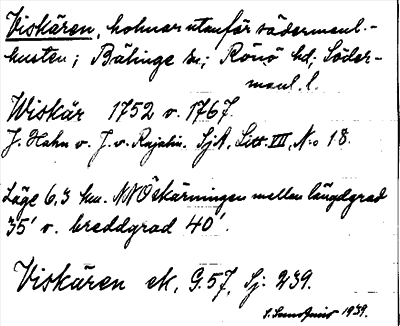 Viskären, holmar utanför södermanl.-
kusten; Bälinge sn; Rönö hd; Söder-
manl. l.
Wiskär 1752 o. 1767.
J. Hahn o. J. v. Rajalin. SjA, Litt. VIII, No 18.
Läge 6,3 km. NNO skärningen mellan längdgrad
35' o. breddgrad 40'.
Viskären ek, G. 57, Sj: 239.
1939.